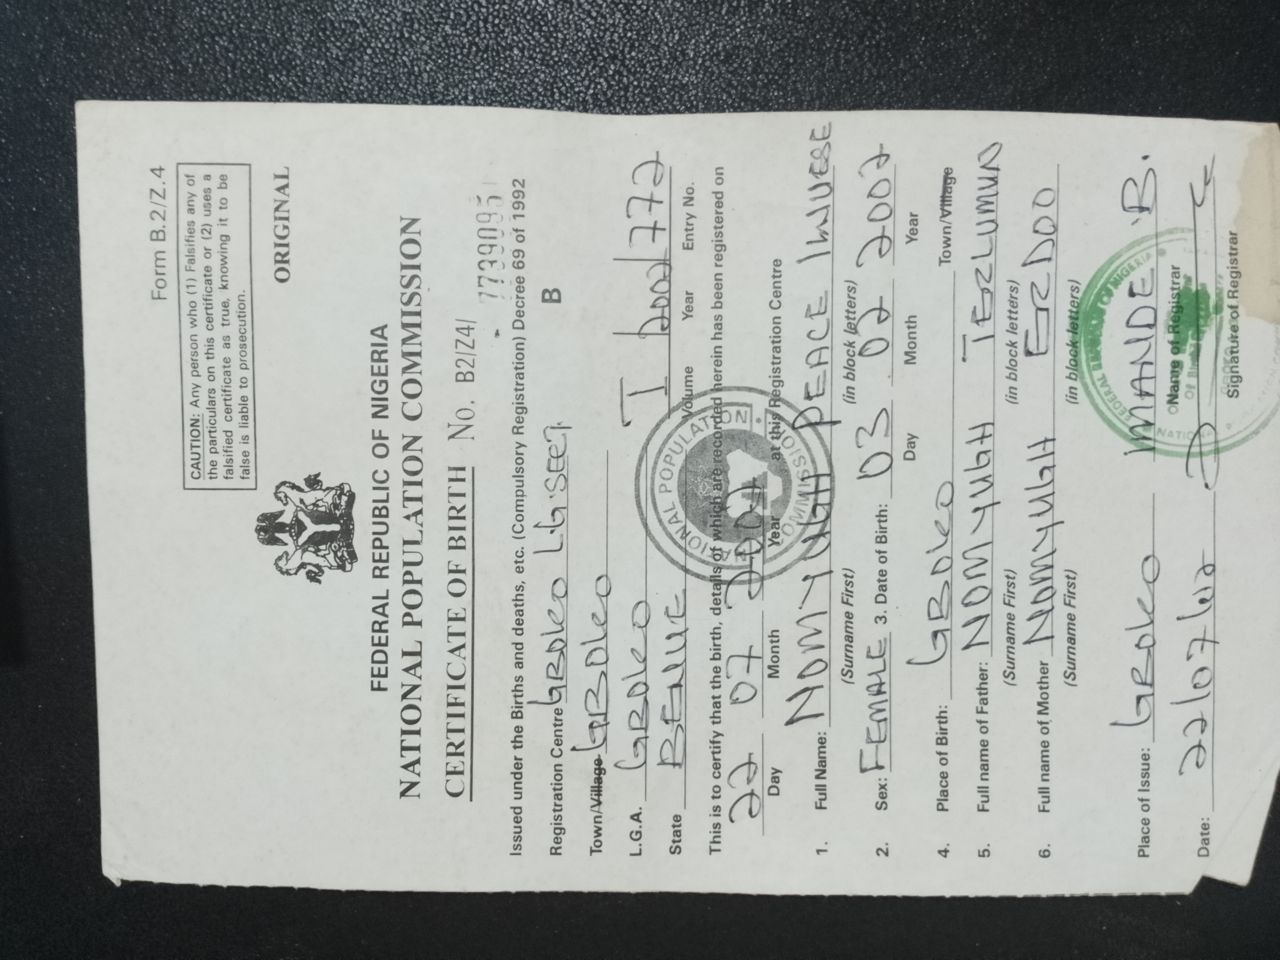 Form B.2/Z.4
CAUTION: Any person who (1) Falsifies any of
the particulars on this certificate or (2) uses a
falsified certificate as true, knowing it to be
false is liable to prosecution.
ORIGINAL
FEDERAL REPUBLIC OF NIGERIA
NATIONAL POPULATION COMMISSION
CERTIFICATE OF BIRTH No. B2/Z4/ 7739095
Issued under the Births and deaths, etc. (Compulsory Registration) Decree 69 of 1992
Registration Centre GBOKO B
Town/Village GBOKO
L.G.A. GBOKO I 2002/772
State BENUE Volume Year Entry No.
This is to certify that the birth, details of which are recorded herein has been registered on
22 07 2002 at this Registration Centre
Day Month Year
1. Full Name: NOMYUGH PEACE
(Surname First) (in block letters)
2. Sex: FEMALE 3. Date of Birth: 03 02 2002
Day Month Year
4. Place of Birth: GBOKO Town/Village
5. Full name of Father: NOMYUGH TERLUMUN
(Surname First) (in block letters)
6. Full name of Mother NOMYUGH ERDOO
(Surname First) (in block letters)
Place of Issue: GBOKO IMANDE B.
Name of Registrar
Date: 22/07/02
Signature of Registrar
NATIONAL POPULATION COMMISSION
FEDERAL REPUBLIC OF NIGERIA